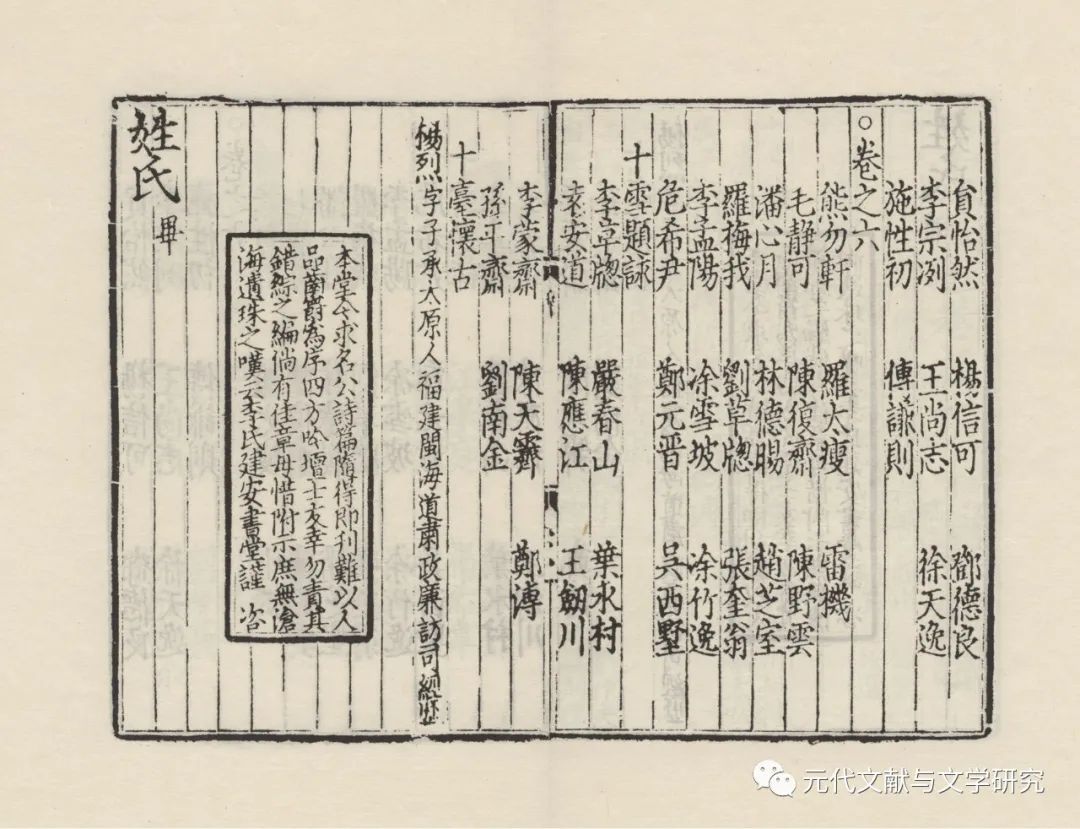 貟怡然 楊信可 鄧德良
李宗冽 王尚志 徐天逸
施性初 傅謙則
○卷之六
熊勿軒 羅太瘦 雷機
毛靜可 陳復齋 陳野雲
潘心月 林德暘 趙芝室
羅梅我 劉草牕 張奎翁
李孟陽 凃雪坡 凃竹逸
危希尹 鄭元晉 吳西墅
十雪題詠
李草牕 嚴春山 葉水村
袁安道 陳應江 王劒川
李蒙齋 陳天霽 鄭溥
孫平齋 劉南金
十臺懷古
楊烈字子承太原人福建閩海道肅政廉訪司經歴
本堂今求名公詩篇隨得即刊難以人
品齒爵為序四方吟壇士友幸勿責其
錯綜之編倘有佳章毋惜附示庶無滄
海遺珠之嘆云李氏建安書堂謹咨
姓氏畢
元代文献与文学研究